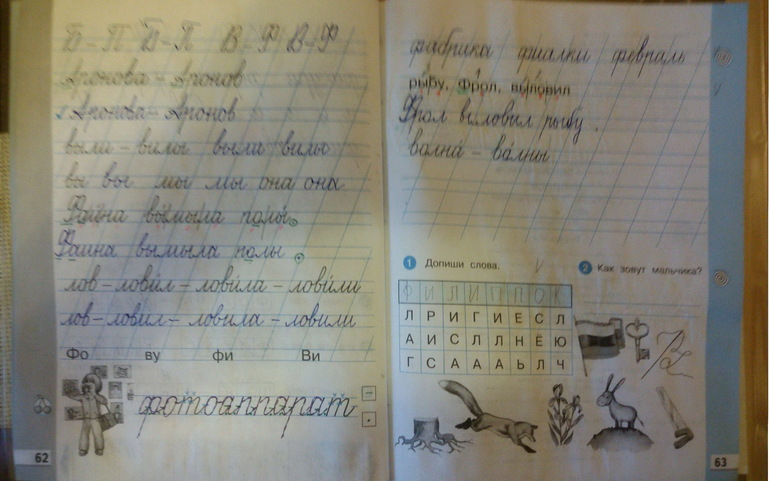 Б - П Б - П В - Ф В - Ф
Аронова - Аронов
Аронова - Аронов
выла - вилы выла вилы
вы вы мы мы она она
Фаина вымыла полы.
Фаина вымыла полы.
лов - ловил - ловила - ловили
лов - ловил - ловила - ловили
Фо ву фи Ви
фотоаппарат
62
фабрика фиалки февраль
рыбу, Фрол, выловил
Фрол выловил рыбу.
волна - волны
1 Допиши слова.
2 Как зовут мальчика?
Ф И Л И П П О К
Л Р И Г И Е С Л
А И С Л Л Н Ё Ю
Г С А А А Ь Л Ч
63